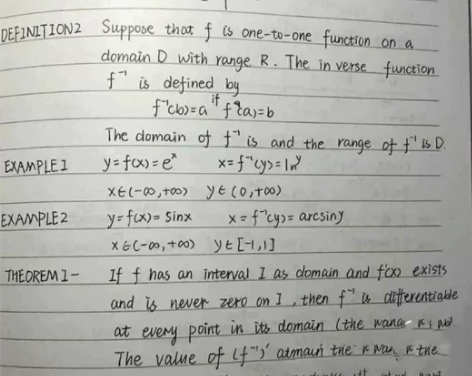 DEFINITION2 Suppose that f is one-to-one function on a
domain D with range R. The inverse function
f⁻¹ is defined by
f⁻¹(b)=a if f(a)=b
The domain of f⁻¹ is and the range of f⁻¹ is D.
EXAMPLE1 y=f(x)=eˣ x=f⁻¹(y)=lnʸ
x∈(-∞,+∞) y∈(0,+∞)
EXAMPLE2 y=f(x)=sinx x=f⁻¹(y)=arcsiny
x∈(-∞,+∞) y∈[-1,1]
THEOREM1- If f has an interval I as domain and f'(x) exists
and is never zero on I, then f⁻¹ is differentiable
at every point in its domain (the
The value of (f⁻¹)' the